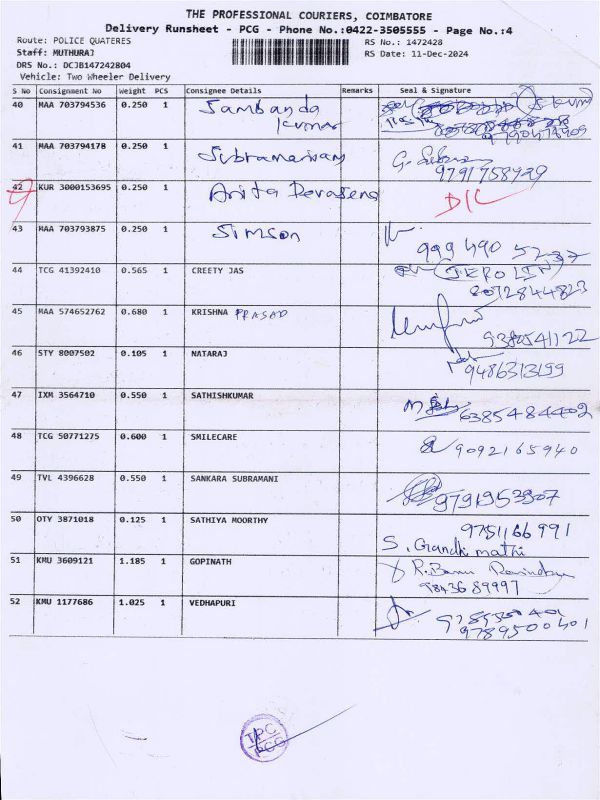 THE PROFESSIONAL COURIERS, COIMBATORE
Delivery Runsheet - PCG - Phone No.:0422-3505555 - Page No.:4
Route: POLICE QUATERES
RS No.: 1472428
Staff: MUTHURAJ
RS Date: 11-Dec-2024
DRS No.: DCJB147242804
Vehicle: Two Wheeler Delivery
S No Consignment No Weight PCS Consignee Details Remarks Seal & Signature
40 MAA 703794536 0.250 1 Sambanda
Kumar
41 MAA 703794178 0.250 1 Subramaniyam
9791758929
42 KUR 3000153695 0.250 1 Anita Devasena D/C
43 MAA 703793875 0.250 1 Simson
999 490 5737
44 TCG 41392410 0.565 1 CREETY JAS JEROLIN
8072844823
45 MAA 574652762 0.680 1 KRISHNA PRASAD
9380541122
46 STY 8007502 0.105 1 NATARAJ
9486313199
47 IXM 3564710 0.550 1 SATHISHKUMAR 6385484402
48 TCG 50771275 0.600 1 SMILECARE 9092165940
49 TVL 4396628 0.550 1 SANKARA SUBRAMANI 9791953907
50 OTY 3871018 0.125 1 SATHIYA MOORTHY 9751166991
S. Grandhimathi
51 KMU 3609121 1.185 1 GOPINATH R. Banu
9843689997
52 KMU 1177686 1.025 1 VEDHAPURI
9789500401